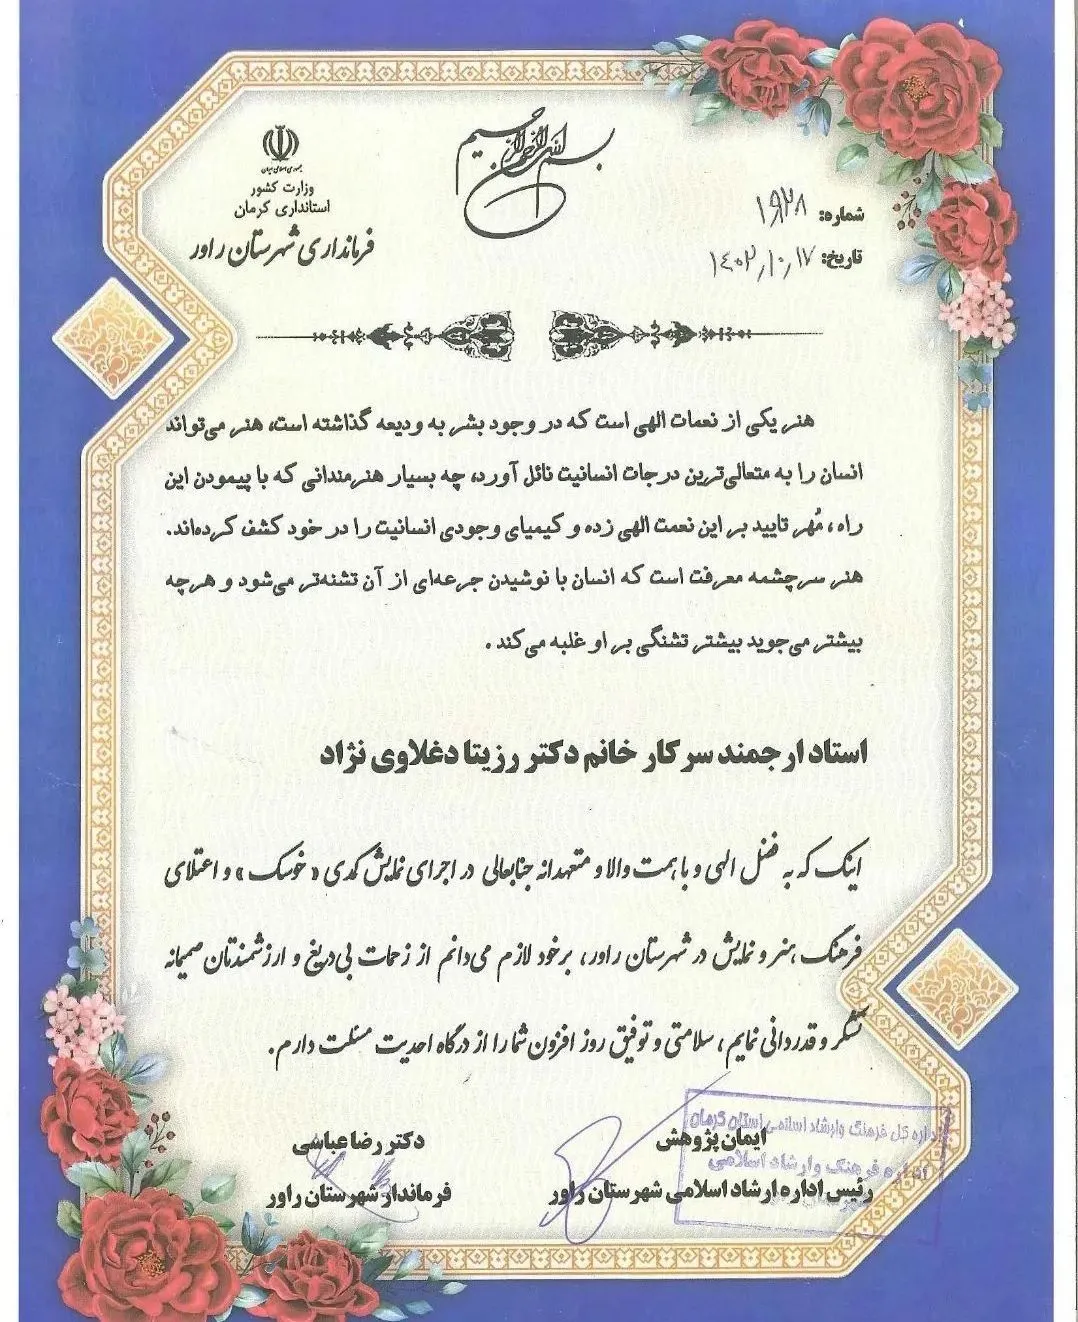 بسم الله الرحمن الرحیم
جمهوری اسلامی ایران
وزارت کشور
استانداری کرمان
فرمانداری شهرستان راور
شماره: ۱۹۲۸
تاریخ: ۱۴۰۲/۱۰/۱۷
هنر یکی از نعمات الهی است که در وجود بشر به ودیعه گذاشته است، هنر می‌تواند
انسان را به متعالی‌ترین درجات انسانیت نائل آورد، چه بسیار هنرمندانی که با پیمودن این
راه، مُهر تایید بر این نعمت الهی زده و کیمیای وجودی انسانیت را در خود کشف کرده‌اند.
هنر سرچشمه معرفت است که انسان با نوشیدن جرعه‌ای از آن تشنه‌تر می‌شود و هرچه
بیشتر می‌جوید بیشتر تشنگی بر او غلبه می‌کند.
استاد ارجمند سرکار خانم دکتر رزیتا دغلاوی نژاد
اینک که به فضل الهی و با همت والا و متعهدانه جنابعالی در اجرای نمایش کمدی «خوسک» و اعتلای
فرهنگ، هنر و نمایش در شهرستان راور، برخود لازم می‌دانم از زحمات بی‌دریغ و ارزشمندتان صمیمانه
تشکر و قدردانی نمایم، سلامتی و توفیق روز افزون شما را از درگاه احدیت مسئلت دارم.
اداره کل فرهنگ وارشاد اسلامی استان کرمان
اداره فرهنگ وارشاد اسلامی
ایمان پژوهش
رئیس اداره ارشاد اسلامی شهرستان راور
دکتر رضا عباسی
فرماندار شهرستان راور